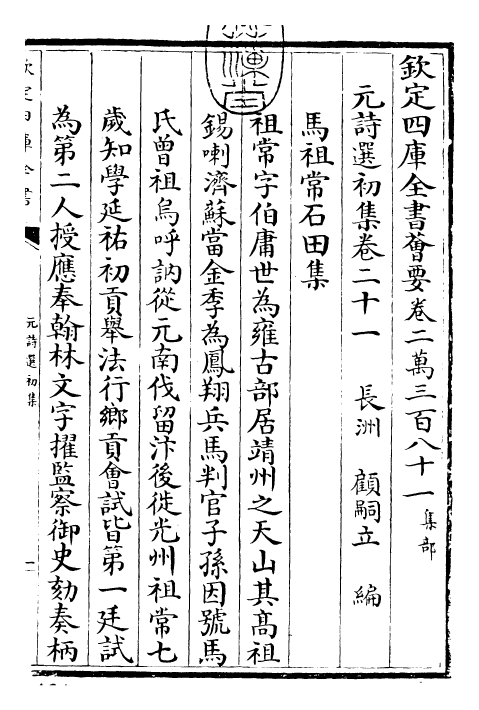 欽定四庫全書薈要卷二萬三百八十一 集部
元詩選初集卷二十一 長洲 顧嗣立 編
馬祖常石田集
祖常字伯庸世為雍古部居靖州之天山其高祖
錫喇濟蘇當金季為鳳翔兵馬判官子孫因號馬
氏曾祖烏呼訥從元南伐留汴後徙光州祖常七
歲知學延祐初貢舉法行鄉貢會試皆第一廷試
為第二人授應奉翰林文字擢監察御史劾奏柄
欽定四庫全書
元詩選初集
一